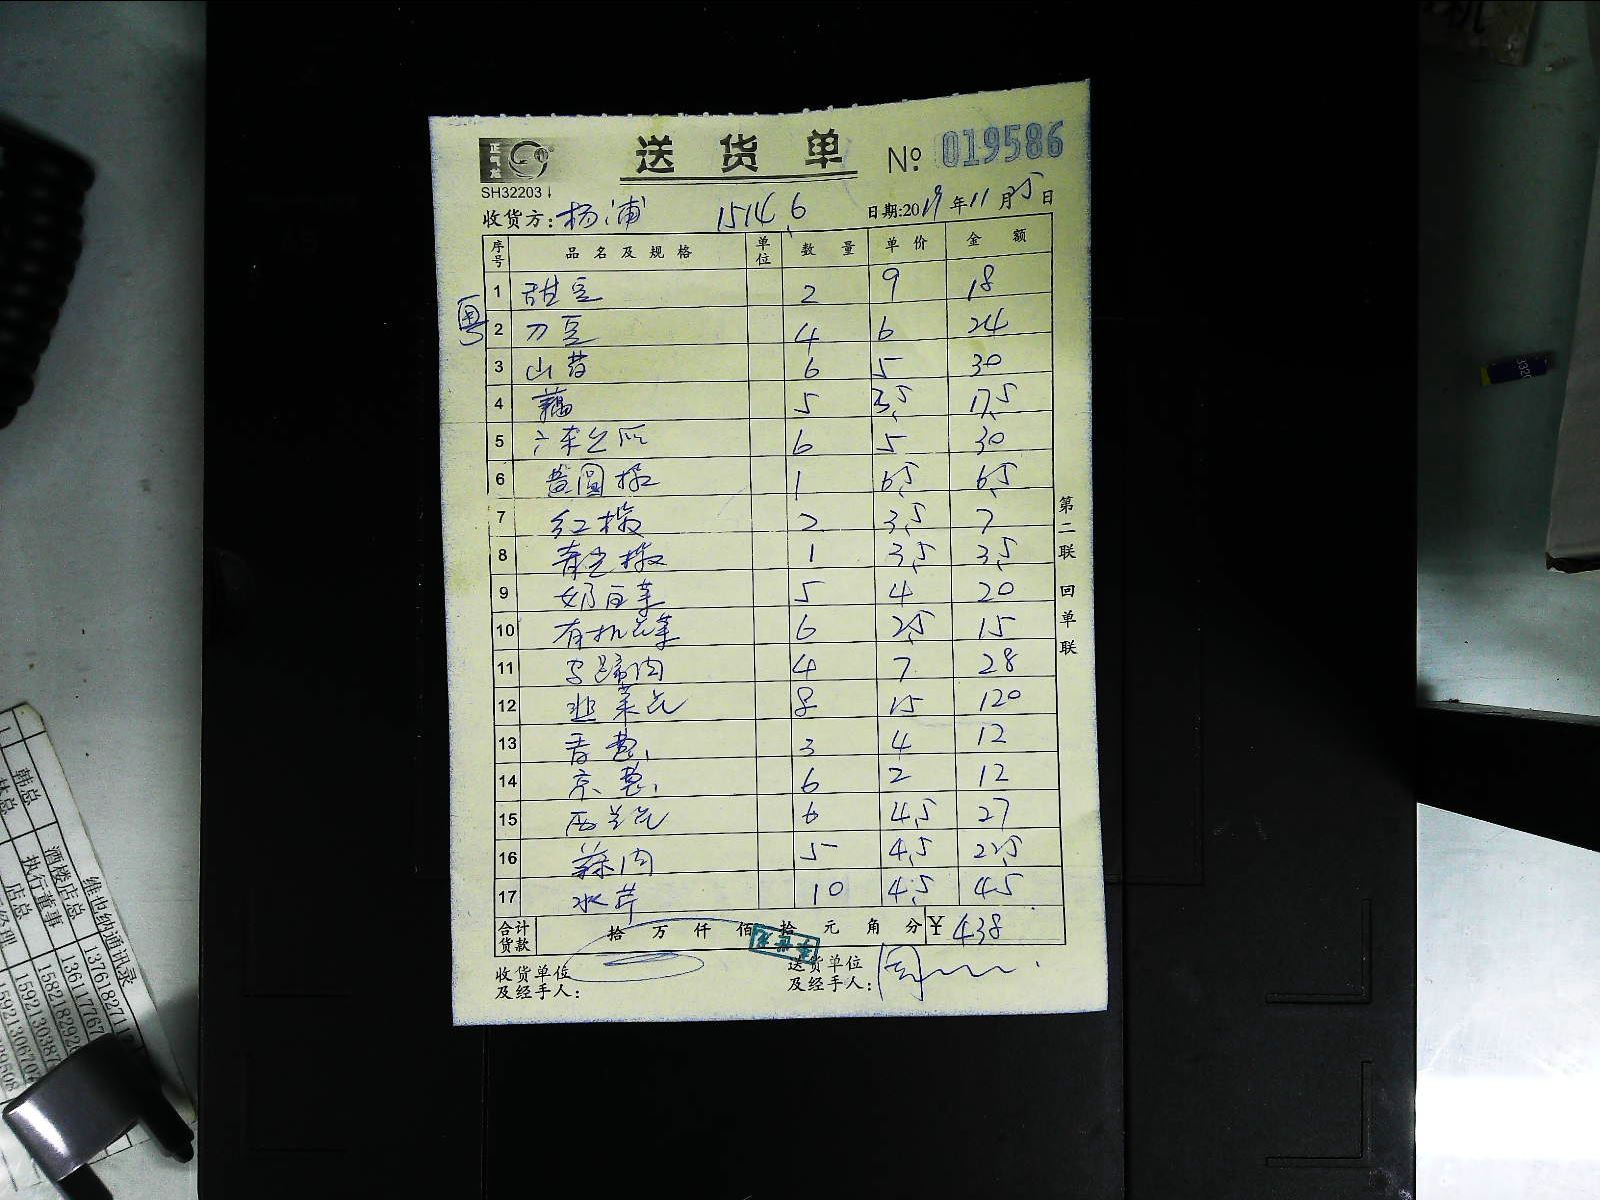 正气龙
送货单 № 019586
SH32203
收货方: 杨浦 1514.6 日期:2019年11月5日
序号 品名及规格 单位 数量 单价 金额
粤
1 甜豆 2 9 18
2 刀豆 4 6 24
3 山药 6 5 30
4 藕 5 3.5 17.5
5 6 5 30
6 黄圆椒 1 6.5 6.5
7 红椒 2 3.5 7
8 青尖椒 1 3.5 3.5
9 奶白菜 5 4 20
10 有机花菜 6 2.5 15
11 马蹄肉 4 7 28
12 韭菜花 8 15 120
13 香葱 3 4 12
14 京葱 6 2 12
15 西兰花 6 4.5 27
16 蒜肉 5 4.5 22.5
17 水芹 10 4.5 45
合计货款 拾 万 仟 佰 拾 元 角 分 ¥ 438
收货单位及经手人:
送货单位及经手人: 周
第二联 回单联
维也纳通讯录
韩总 酒楼店总
林总 执行董事
店总